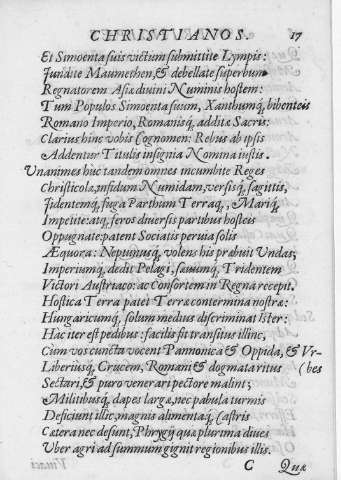 CHRISTIANOS. 17
Et Simoenta suis victum submittite Lympis:
Fundite Maumethen, & debellate superbum
Regnatorem Asiæ divini Numinis hostem:
Tum Populos Simoenta suum, Xanthumq́; bibenteis
Romano Imperio, Romanisq́; addite Sacris:
Clarius hinc vobis Cognomen: Rebus ab ipsis
Addentur Titulis insignia Nomina iustis.
Unanimes huc tandem omnes incumbite Reges
Christicolæ, infidum Numidam, versisq́; sagittis,
Fidentemq́; fuga Parthum Terraq́;, Mariq́;
Impetite: atq́; feros diversis partibus hosteis
Oppugnate: patent Sociatis pervia solis
Æquora: Neptunusq́; volens his præbuit Undas;
Imperiumq́; dedit Pelagi, sævumq́; Tridentem
Victori Austriaco: ac Consortem in Regna recepit.
Hostica Terra patet Terræ contermina nostræ:
Hungaricumq́; solum medius discriminat Ister:
Hac iter est pedibus: facilis fit transitus illinc,
Cum vos cuncta vocent Pannonica & Oppida, & Vr-
Liberiusq́; Crucem, Romani & dogmata ritus (bes
Sectari, & puro venerari pectore malint;
Militibusq́; dapes largæ, nec pabula turmis
Deficiunt illic, magnis alimentaq́; (astris
Cætera nec desunt, Phrygij quæ plurima dives
Vber agri ad summum gignit regionibus illis.
C Quæ